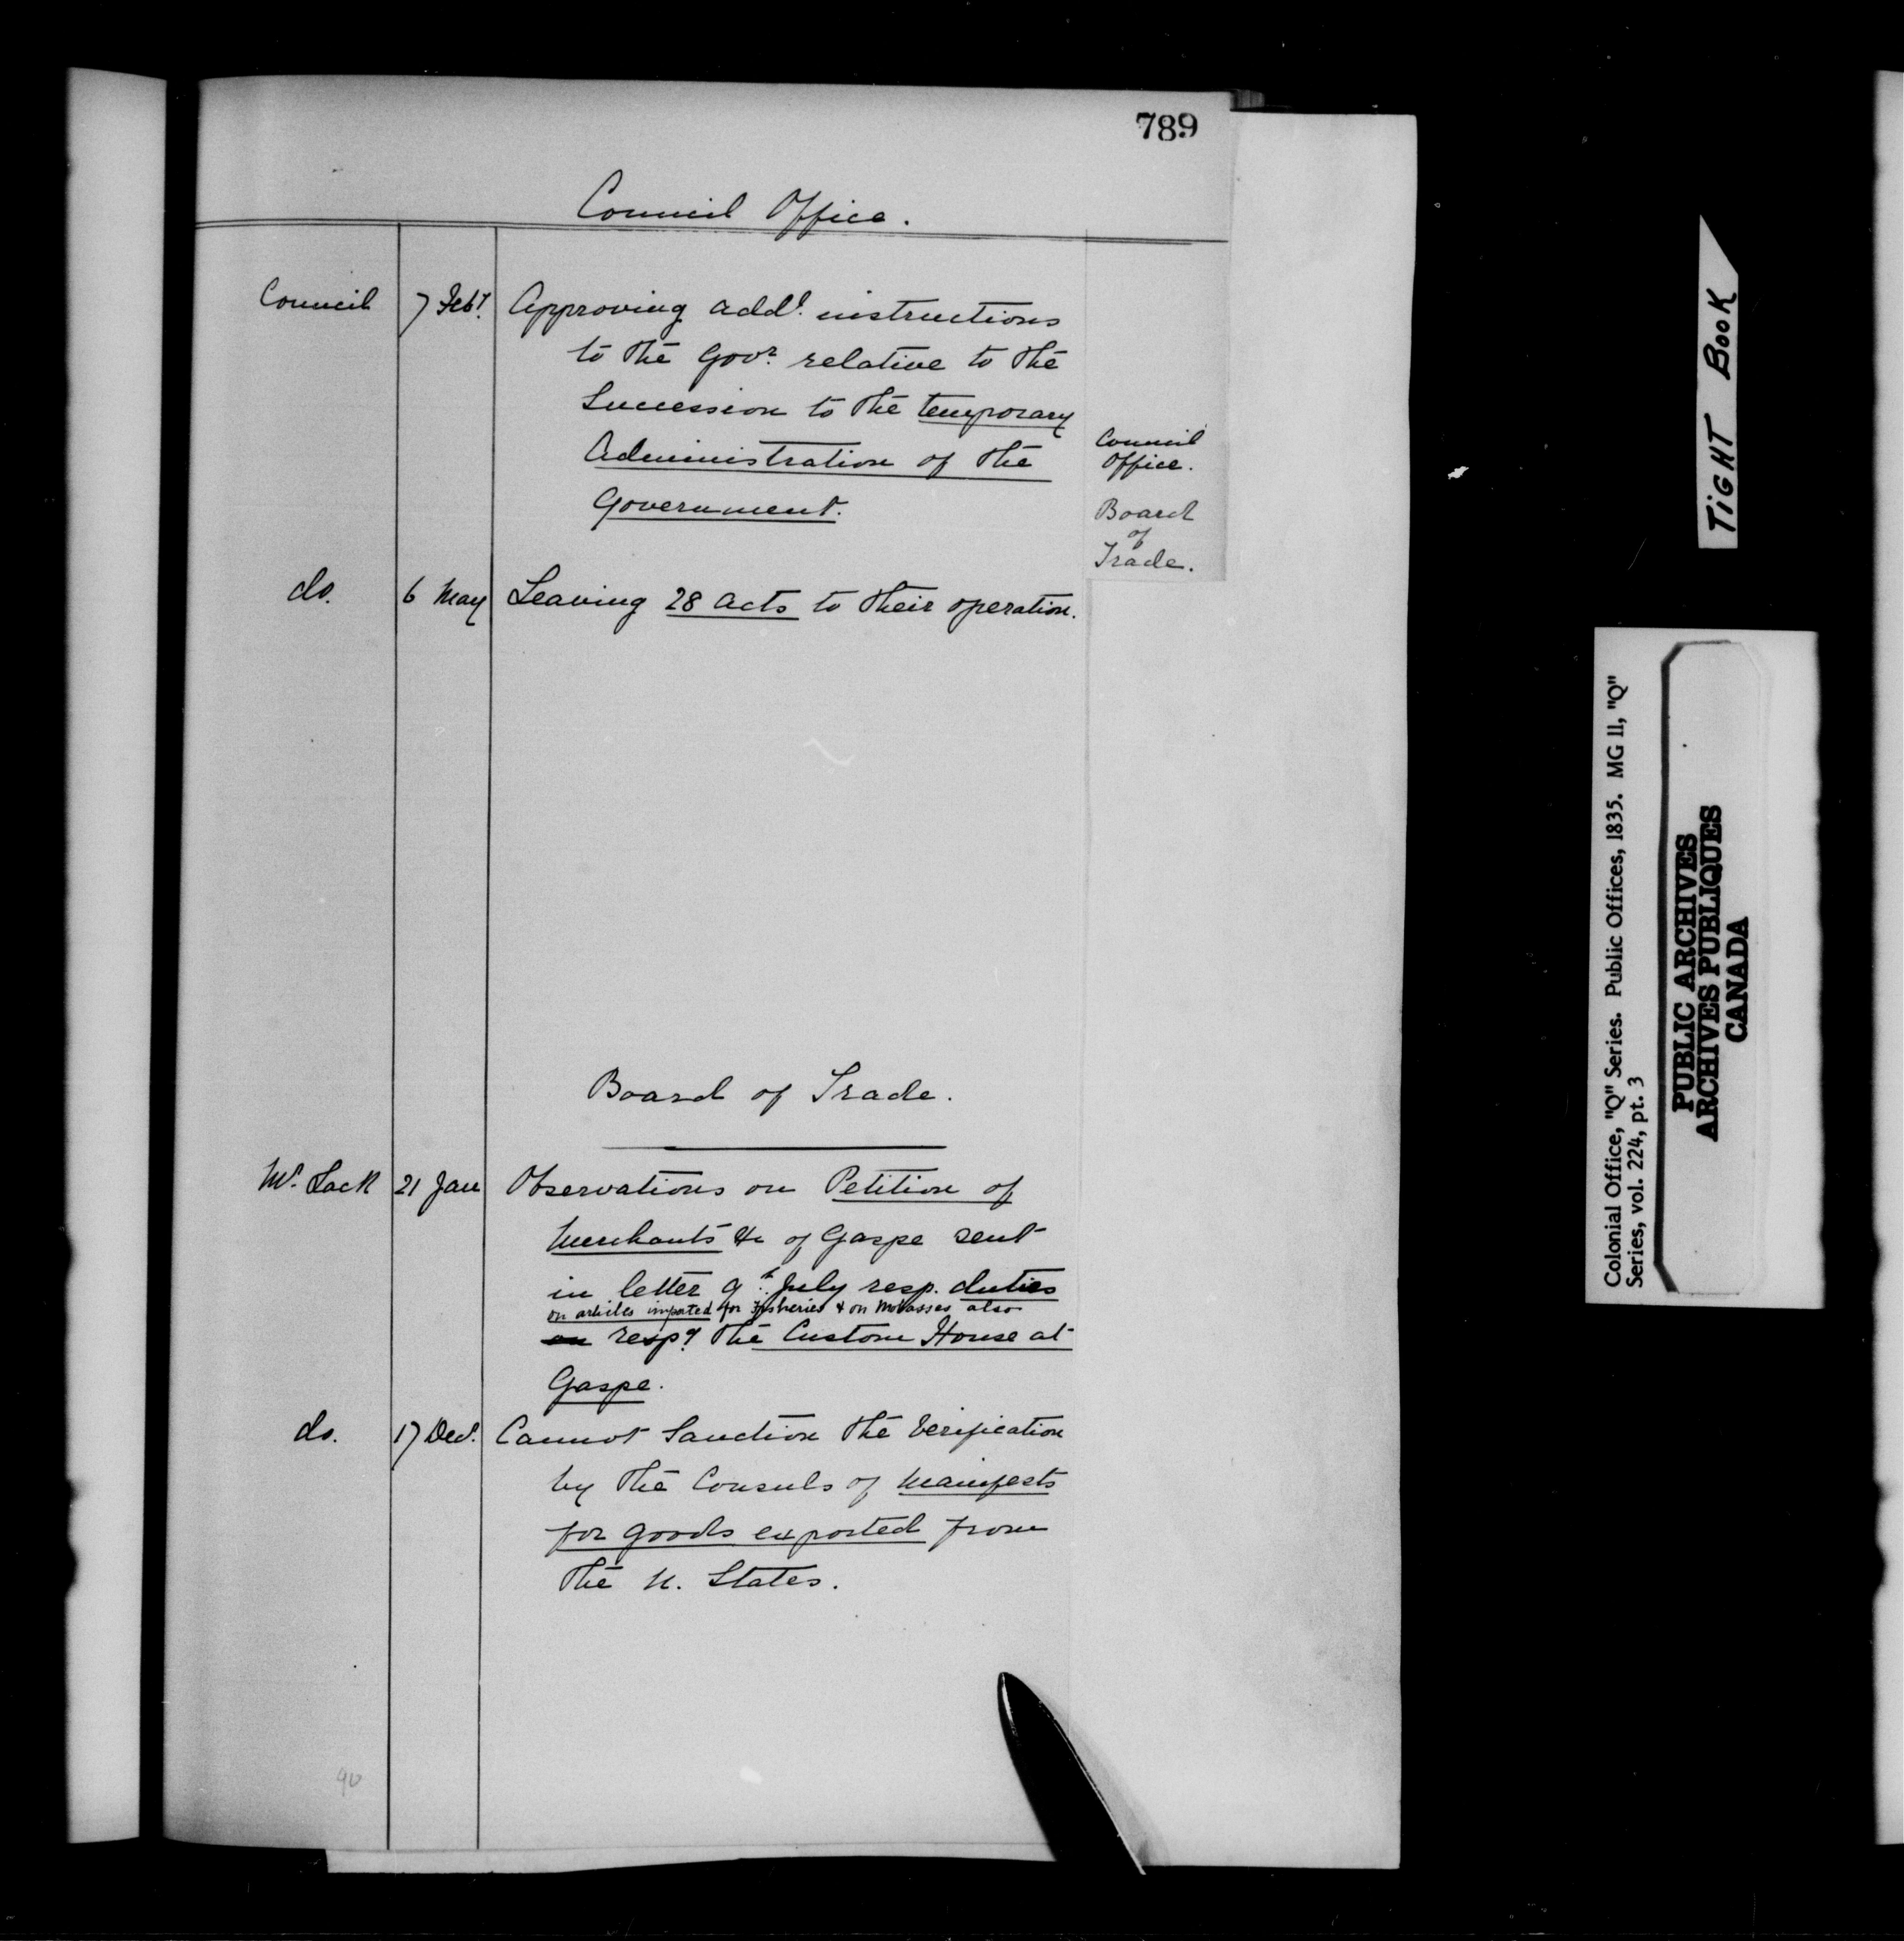 789
Council Office.
Council 7 Feby. Approving addl. instructions
to the Govr. relative to the
Succession to the temporary
Administration of the
Government.
Council
Office.
Board
of
Trade.
do. 6 May Leaving 28 Acts to their operation.
Board of Trade.
Mr. Lack 21 Jan Observations on Petition of
Merchants &c of Gaspe sent
in letter 9th. July resp. duties
on articles imported for Fisheries & on Molasses also
on respg. the Custom House at
Gaspe.
do. 17 Decr. Cannot Sanction the Verification
by the Consuls of Manifests
for goods exported from
the U. States.
90
TIGHT BOOK
Colonial Office, "Q" Series. Public Offices, 1835. MG 11, "Q"
Series, vol. 224, pt. 3
PUBLIC ARCHIVES
ARCHIVES PUBLIQUES
CANADA